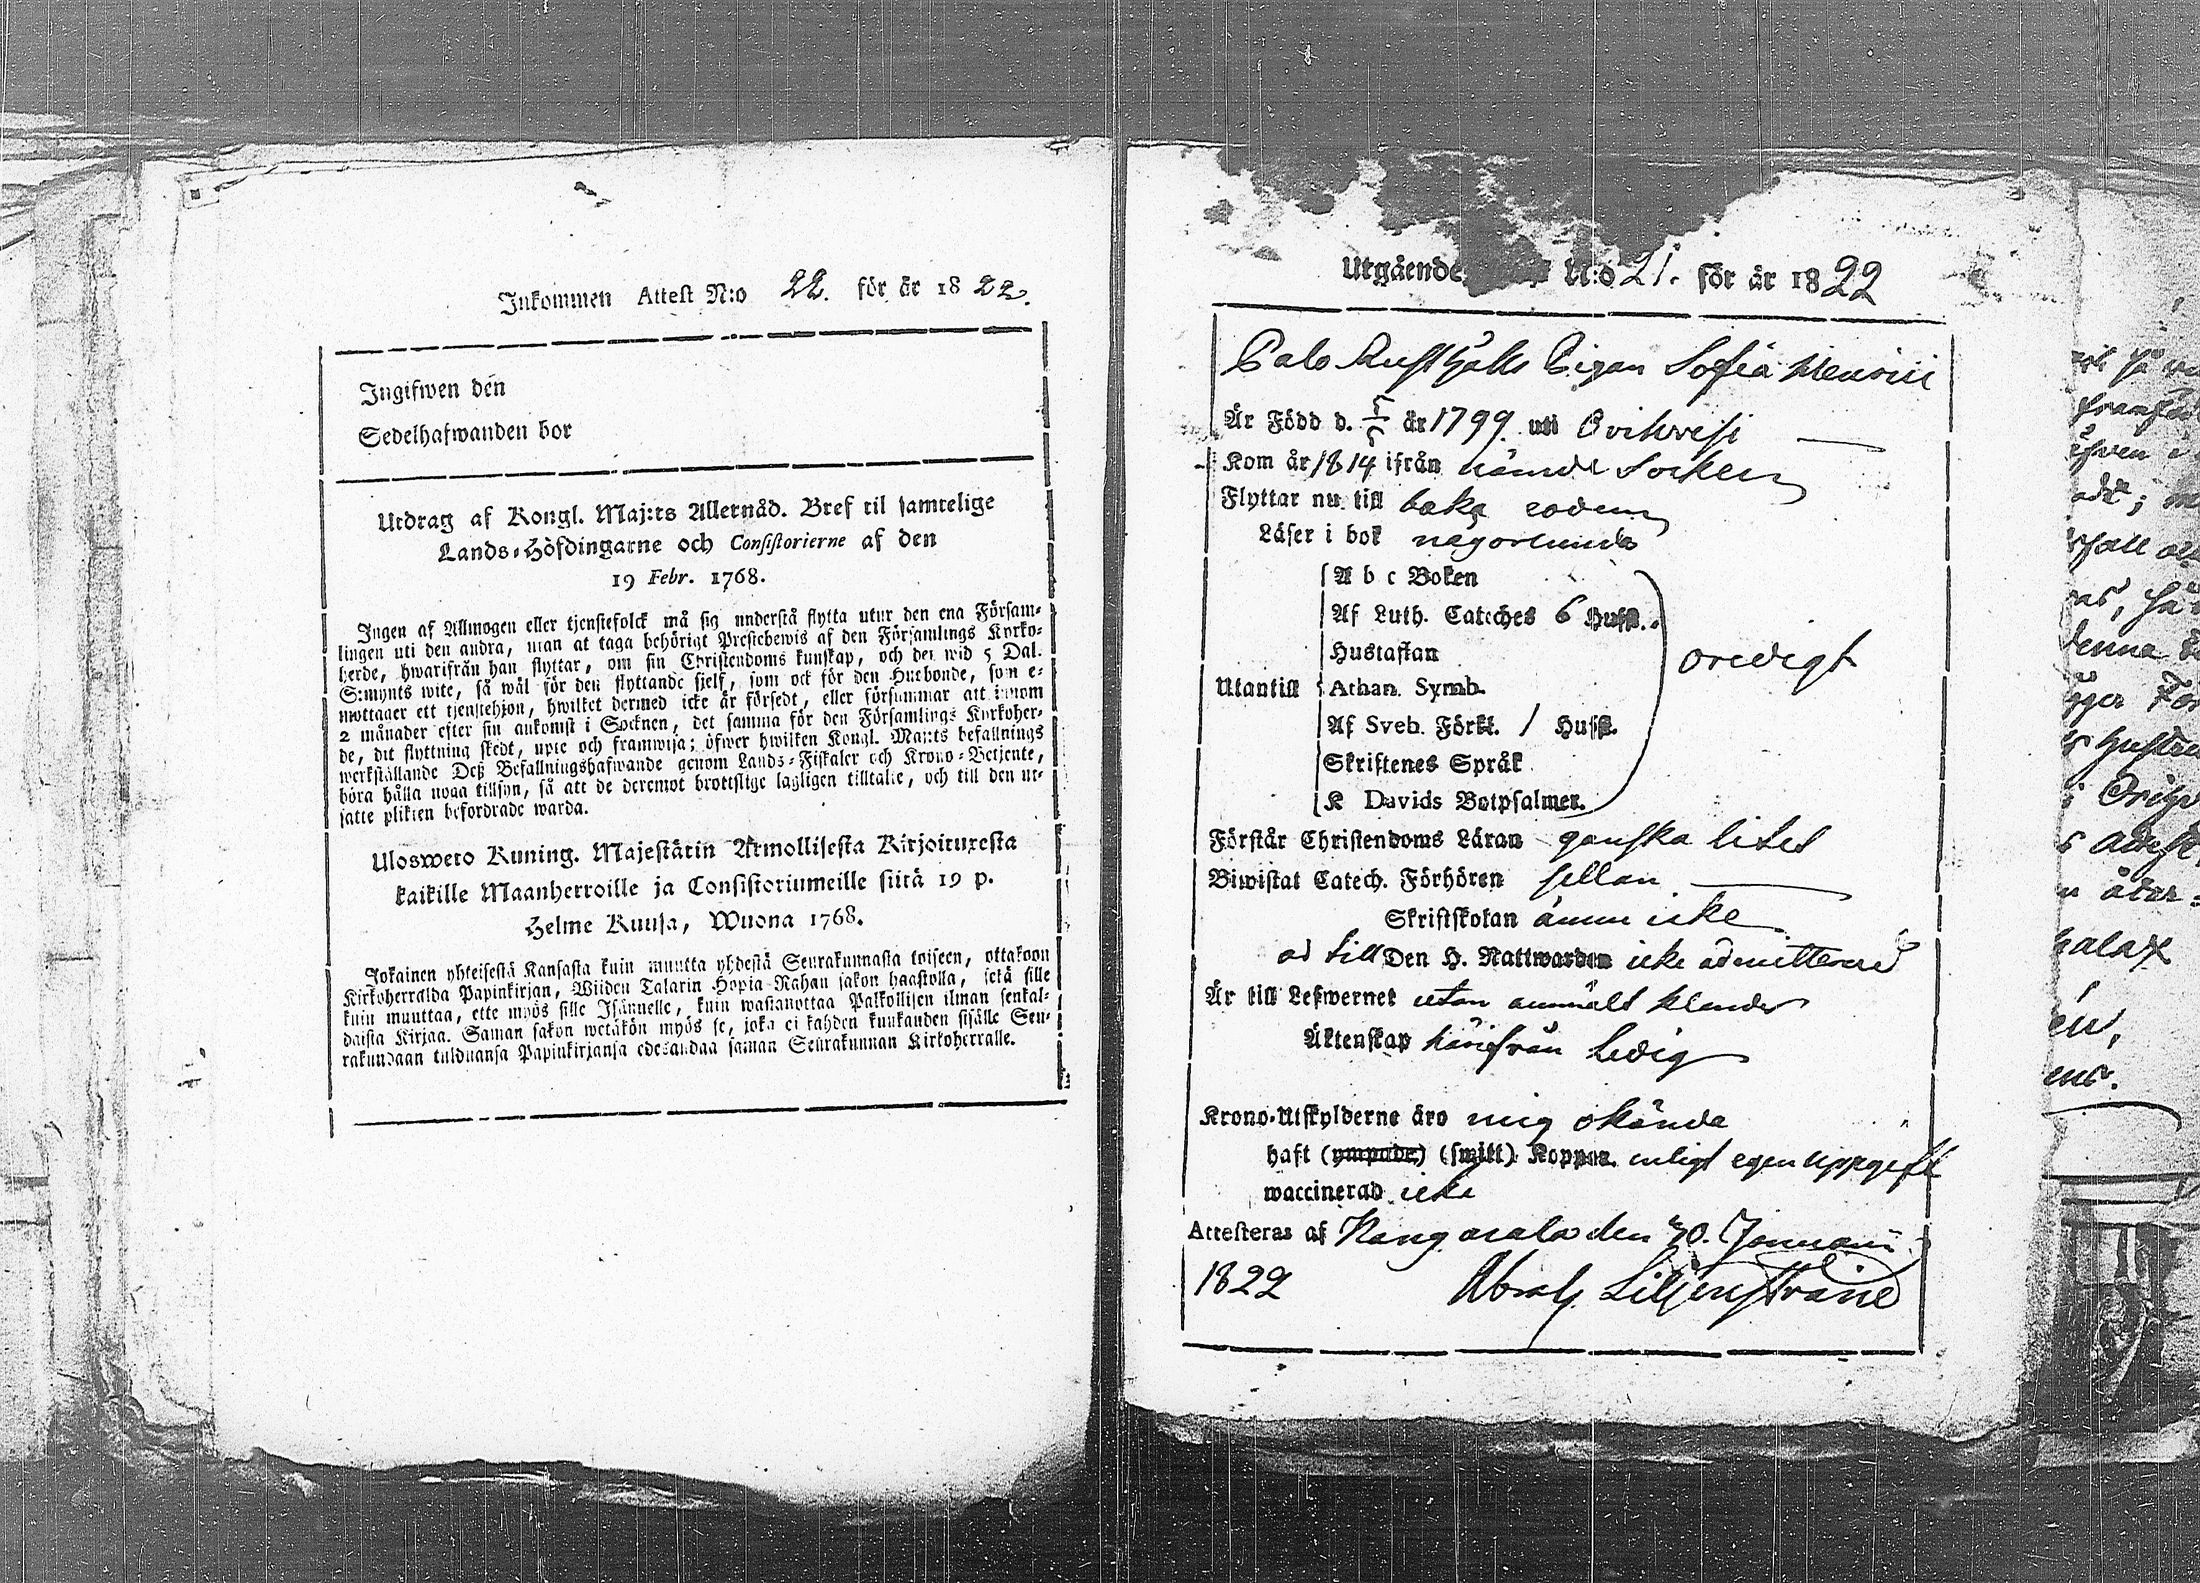 Inkommen Attest N:o 22. för år 1822.
Ingifwen den
Sedelhafwanden bor
Utdrag af Kongl. Maj:ts Allernåd. Bref til samtelige
Lands-Höfdingarne och Consistorierne af den
19 Febr. 1768.
Ingen af Allmogen eller tjenstefolck må sig understå flytta utur den ena Församlingen
uti den andra, utan at taga behörigt Prestebewis af den Församlings Kyrkoherde,
hwarifrån han flyttar, om sin Christendoms kunskap, och det wid 5 Dal.
S:mynts wite, så wäl för den flyttande sjelf, som ock för den Husbonde, som emottager
ett tjenstehjon, hwilket dermed icke är försedt, eller försummar att innom
2 månader efter sin ankomst i Socknen, det samma för den Församlings Kyrkoherde,
dit flyttning skedt, upte och framwisa; öfwer hwilken Kongl. Maj:ts befallnings
werkställande Deß Befallningshafwande genom Lands-Fiskaler och Krono-Betjente,
böra hålla noga tillsyn, så att de deremot brottslige lagligen tilltalte, och till den utsatte
plikten befordrade warda.
Ulosweto Kuning. Majestätin Armollisesta Kirjoituxesta
kaikille Maanherroille ja Consistoriumeille siitä 19 p.
Helme Kuusa, Wuona 1768.
Jokainen yhteisestä Kansasta kuin muutta yhdestä Seurakunnasta toiseen, ottakoon
Kirkoherralda Papinkirjan, Wiiden Talarin Hopia-Rahan sakon haastolla, setä sille
kuin muuttaa, ette myös sille Isännelle, kuin wastanottaa Palkollisen ilman senkaldaista
Kirjaa. Saman sakon wetäkön myös se, joka ei kahden kuukauden sisälle Seurakundaan
tulduansa Papinkirjansa edesandaa saman Seurakunnan Kirkoherralle.
Utgående N:o 21. för år 1822
Palo Rusthålls Pigan Sofia
Är Född d. 5/5 år 1799 uti Orihvesi
Kom år 1814 ifrån nämde Socken
Flyttar nu till baka
Läser i bok någorlunda
A b c Boken
Af Luth. Cateches 6 Hufst.
Hustaflan
Utantill Athan. Symb. oredigt
Af Sveb. Förkl. / Hufst.
Skriftenes Språk
K Davids Botpsalmer.
Förstår Christendoms Läran ganska litet
Biwistat Catech. Förhören sellan
Skriftskolan ännu icke
och till Den H. Nattwarden icke admitterad
Är till Lefwernet utan anmält klander
Äktenskap härifrån ledig
Krono-Utskylderne äro mig okände
haft (ympade) (smitt) Koppor enligt egen uppgift
waccinerad icke
Attesteras af Kangasala den 30. Januarii
1822 Abrah. Liljenstrand